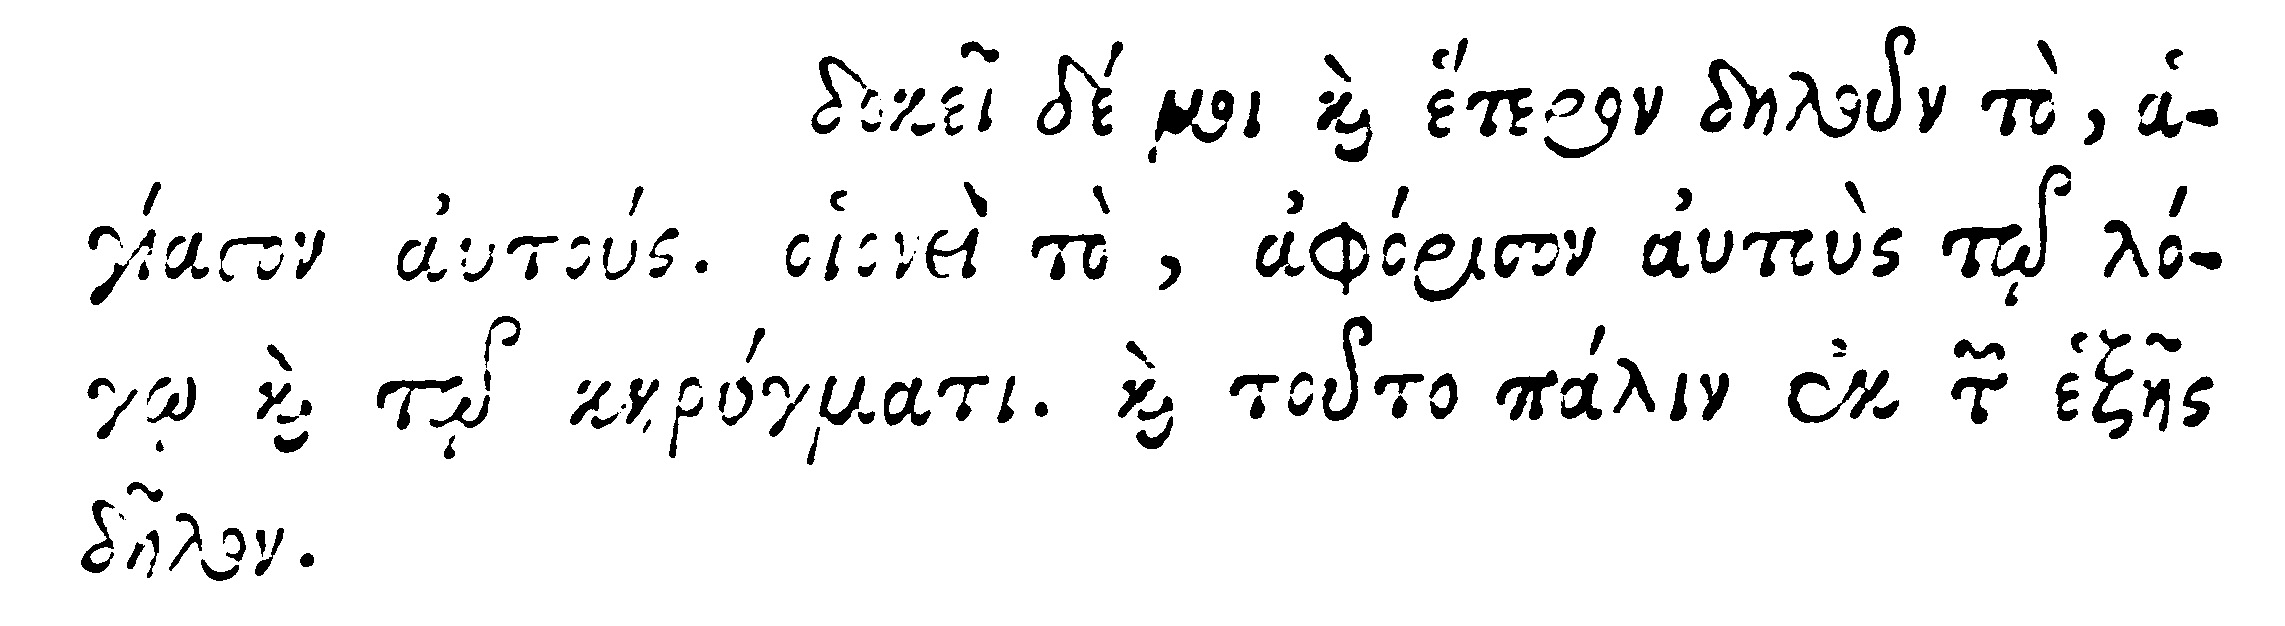 δοκεῖ δέ μοι καὶ ἕτερον δηλοῦν τὸ, ἁ-
γίασον ἀυτούς. οἱονεὶ τὸ, ἀφόρισον ἀυτοὺς τῷ λό-
γῳ καὶ τῷ κηρύγματι. καὶ τοῦτο πάλιν ἐκ τῶν ἑξῆς
δῆλον.